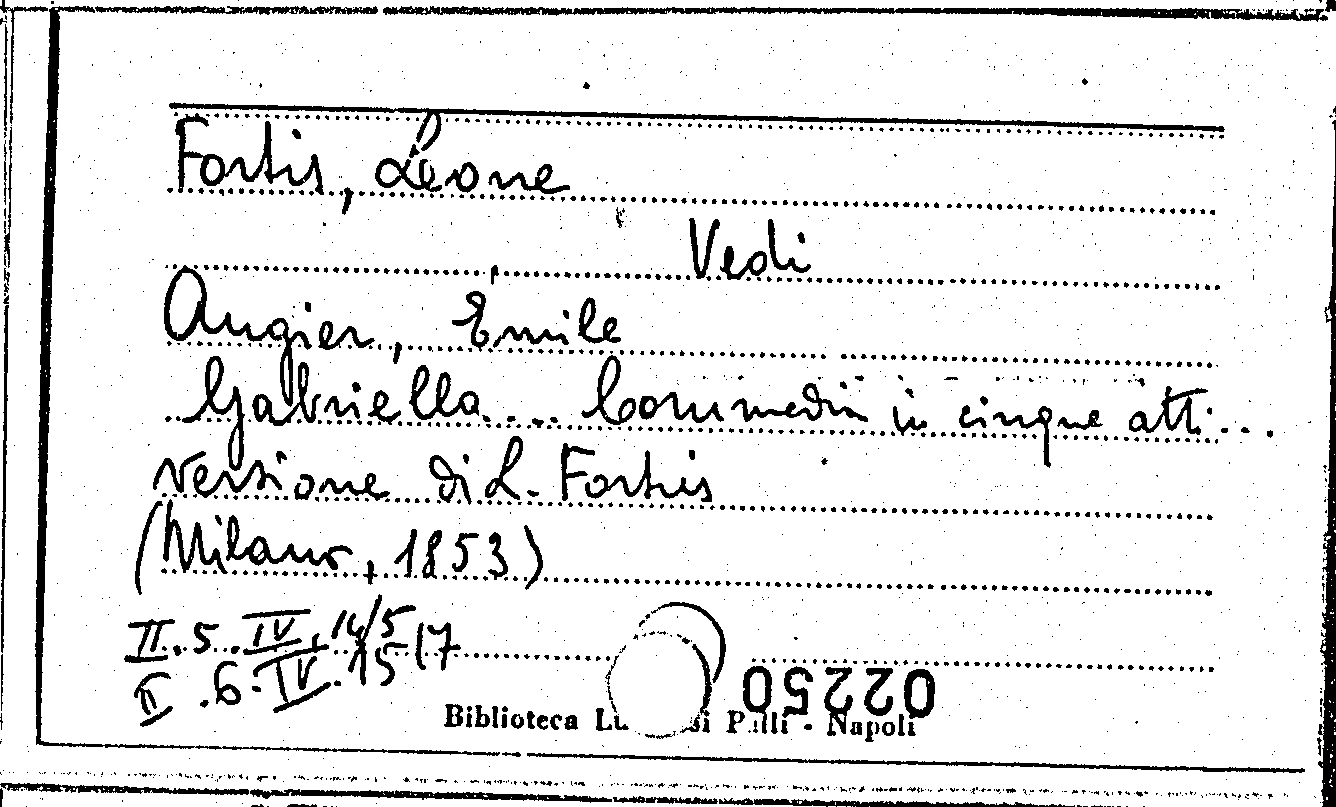 Fortis, Leone
Vedi
Augier, Emile
Gabriella.... Commedia in cinque atti...
versione di L. Fortis
(Milano, 1853)
II.5.IV,14/5
II.6.IV.15(7
02250
Biblioteca - Napoli